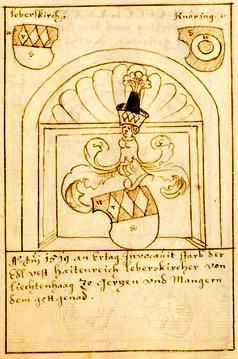 Leberskirch.
Knoring.
1519 an Ertag Invocauit starb der
Edl vest Haitenreich Leberskircher von
Liechtenhaag zo Gerzen vnd Mangern
dem gott genad.